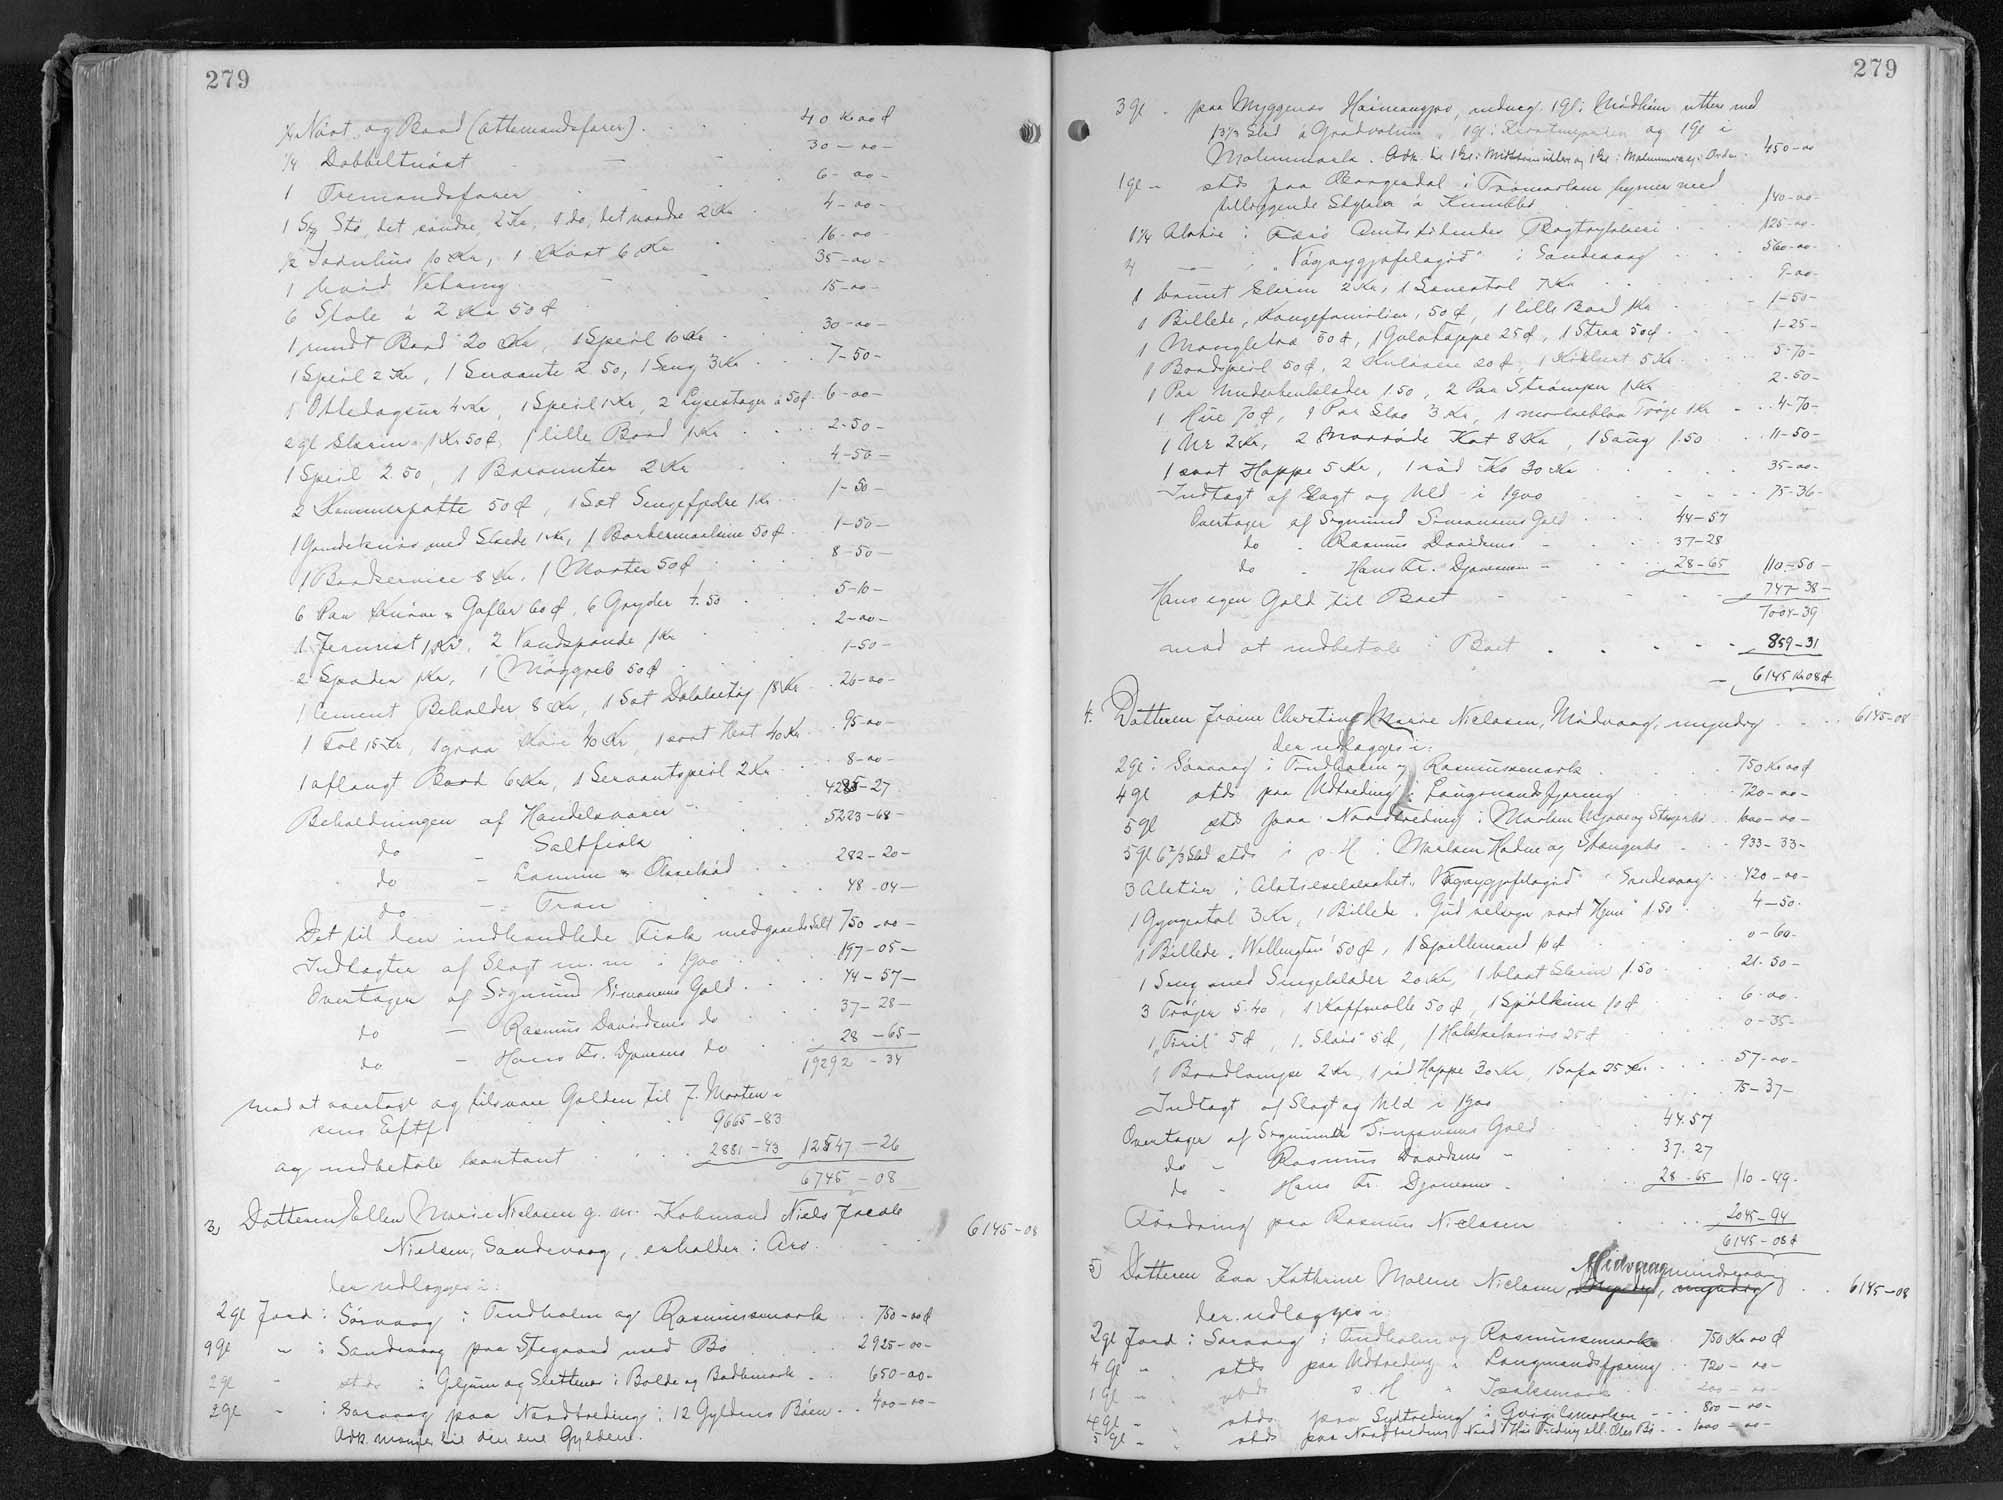 279
1/4 Nöst og Baad (attemandsfarer) . . . 40 Kr 00 Ø
1/4 Dobbeltnöst — 30 - 00 -
1 Tremandsfarer . . . 6 - 00 -
1 Stø, det søndre, 2 Kr, 1 do, det nordre 2 Kr . 4 - 00 -
1/2 10 Kr, 1 6 Kr . . 16 - 00 -
1 hvid . . 35 - 00 -
6 Stole à 2 Kr 50 Ø . 15 - 00 -
1 rundt Bord 20 Kr, 1 Speil 10 Kr . . . 30 - 00 -
1 Speil 2 Kr, 1 Servante 2.50, 1 Seng 3 Kr . . . 7 - 50 -
1 Ottedagsur 4 Kr, 1 Speil 1 Kr, 2 Lysestager à 50 Ø . 6 - 00 -
2 gl Skrin 1 Kr 50 Ø, 1 lille Bord 1 Kr . . . 2 - 50 -
1 Speil 2.50, 1 Barometer 2 Kr . . 4 - 50 -
2 Kammerpotte 50 Ø, 1 Sæt Sengefjedre 1 Kr . . 1 - 50 -
med Skede 1 Kr, 1 Barbermaskine 50 Ø . . 1 - 50 -
1 Bordservice 8 Kr, 1 Morter 50 Ø . . . 8 - 50 -
6 Par Knive & Gafler 60 Ø, 6 Gryder 4.50 . . 5 - 10 -
1 Jernrist 1 Kr, 2 Vandspande 1 Kr . . 2 - 00 -
2 Spader 1 Kr, 1 Møggreb 50 Ø . . . 1 - 50 -
1 Cement Beholder 8 Kr, 1 Sæt 18 Kr . . 26 - 00 -
1 15 Kr, 1 graa 40 Kr, 1 sort Hest 40 Kr . . 95 - 00 -
1 aflangt Bord 6 Kr, 1 Servantspeil 2 Kr . . . 8 - 00 -
Beholdningen af Handelsvarer — . . 4285 - 27
do — Saltfisk . . . 5223 - 68 -
do — Lamme & Oksekød . . . 282 - 20 -
do — Tran . . . 48 - 04 -
Det til den indhandlede Fisk medgaaede Salt 750 - 00 -
Indtægter af Slagt m. m. i 1900 . . . 197 - 05 -
Overtager af Sigmund Simonsens Gæld . . . . 44 - 57 -
do — Rasmus Davidsens do . . . 37 - 28 -
do — Hans Fr. Djonesens do . . . 28 - 65 -
19292 - 34
mod at overtage og tilsvare Gælden til J. Morten-
sens Eftf . . . 9665 - 83
og indbetale kontant . . . . 2881 - 43 12547 - 26
6745 - 08
3) Datteren Ellen Marie Nielsen g. m. Købmand Niels Jacob
Nielsen, Sandevaag, erholder i Arv . . . 6145 - 08
der udlægges i:
2 gl Jord i Sørvaag i Tindholm og Rasmusmark . . 750 - 00 Ø
9 gl " i Sandevaag paa Stegaard med Bø . . . . 2925 - 00 -
2 gl " stds i Giljum og Slettenes i Bolde og Bødlemark . . 650 - 00 -
2 gl " i Sørvaag paa Nordtreding i 12 Gyldens Bøen . . 400 - 00 -
Adk. mangler til den ene Gylden.
279
3 gl . paa Myggenæs , undtag. 1 gl i Midheim uttere med
13 1/3 Skd à , 1 gl i og 1 gl i
Malunmark. Adk. til 1 gl i og 1 gl i Malunmark i Orden . 450 - 00
1 gl - stds paa i med
tilliggende à . . . 140 - 00 -
1 1/4 Aktie i Færø Amtstidendes Bogtrykkeri . . . 125 - 00 -
4 —"— i "Vágbyggjafelagid" i Sandevaag . . . 560 - 00 -
1 Skrin 2 Kr, 1 Lænestol 7 Kr . . . . 9 - 00 -
1 Billede, Kongefamilien, 50 Ø, 1 lille Bord 1 Kr . . . 1 - 50 -
1 Mangletræ 50 Ø, 1 Gulvtæppe 25 Ø, 1 Straa 50 Ø . . . 1 - 25 -
1 Bordspeil 50 Ø, 2 20 Ø, 1 5 Kr . . . . 5 - 70 -
1 Par Underbenklæder 1.50, 2 Par Strømper 1 Kr . . . . 2 - 50 -
1 Hue 70 Ø, 1 Par Sko 3 Kr, 1 mørkeblaa Trøje 1 Kr . . . 4 - 70 -
1 Ur 2 Kr, 2 Køt 8 Kr, 1 Seng 1.50 . . 11 - 50 -
1 sort Hoppe 5 Kr, 1 rød Ko 30 Kr . . . . 35 - 00 -
Indtægt af Slagt og Uld i 1900 . . . . 75 - 36 -
Overtager af Sigmund Simonsens Gæld . . . 44 - 57
do . Rasmus Davidsens — . . . 37 - 28
do . Hans Fr. Djonesens — . . . 28 - 65 110 - 50 -
Hans egen Gæld til Boet — . . . . 747 - 38 -
7004 - 39
mod at indbetale i Boet . . . . . 859 - 31
6145 Kr 08 Ø
4. Datteren Marie Nielsen, Midvaag, myndig . . . . 6145 - 08
der udlægges i:
2 gl i Sørvaag i Tindholm og Rasmusmark . . . 750 Kr 00 Ø
4 gl stds paa Udtreding i Langmandsfjøring . . . 720 - 00 -
5 gl stds paa Nordtreding i . . 1000 - 00 -
5 gl 6 2/3 Skd stds i s. H. i . . 933 - 33 -
3 Aktier i Aktieselskabet "Vágbyggjafelagid" Sandevaag . . 420 - 00 -
1 Gyngestol 3 Kr, 1 Billede "Gud velsigne vort Hjem" 1.50 . . 4 - 50 -
1 Billede "Wellington" 50 Ø, 1 Spillemand 10 Ø . . 0 - 60 -
1 Seng med Sengeklæder 20 Kr, 1 blaat Skrin 1.50 . . . 21 - 50 -
3 Trøjer 5.40, 1 Kaffemølle 50 Ø, 1 10 Ø . . 6 - 00 -
1 5 Ø, 1 5 Ø, 1 25 Ø . . 0 - 35 -
1 Bordlampe 2 Kr, 1 rød Hoppe 30 Kr, 1 Sofa 25 Kr . . . 57 - 00 -
Indtægt af Slagt og Uld i 1900 . . . . 75 - 37 -
Overtager af Sigmund Simonsens Gæld . . . 44.57
do - Rasmus Davidsens — . . . 37.27
do - Hans Fr. Djonesens - . . . 28 - 65 110 - 49 -
Fordring paa Rasmus Nielsen . . . . 2045 - 94
6145 - 08 Ø
5) Datteren Eva Kathrine Malene Nielsen, Midvaag, umyndig . . 6145 - 08
der udlægges i:
2 gl Jord i Sørvaag i Tindholm og Rasmusmark 750 Kr 00 Ø
4 gl - stds paa Udtreding i Langmandsfjøring . . 720 - 00 -
1 gl - stds s. H. " Isaksmark . 200 - 00 -
4 gl - stds paa Sydtreding i . . . 800 - 00 -
5 gl - stds paa Nordtreding . . 1000 - 00 -